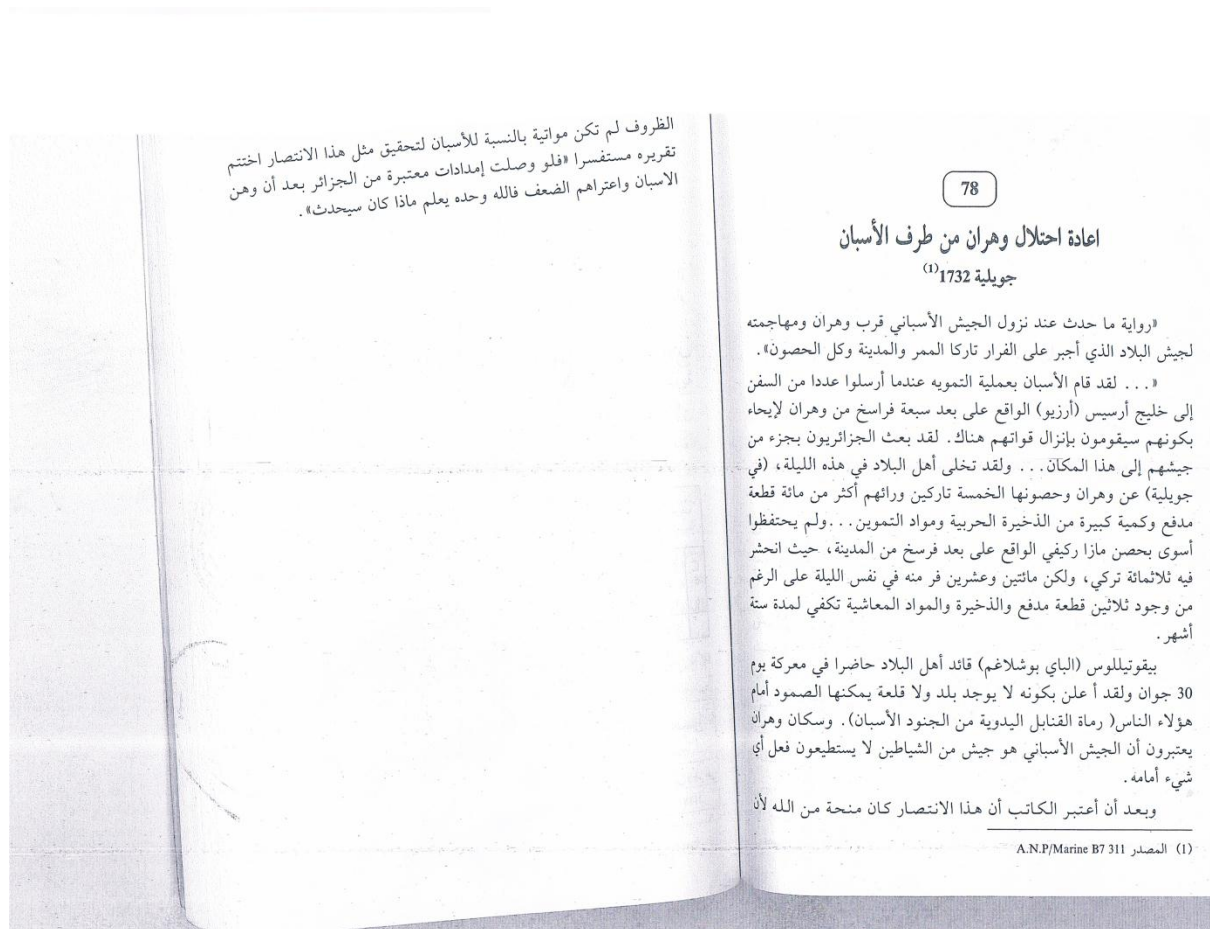 78
اعادة احتلال وهران من طرف الأسبان
جويلية 1732(1)
«رواية ما حدث عند نزول الجيش الأسباني قرب وهران ومهاجمته
لجيش البلاد الذي أجبر على الفرار تاركا الممر والمدينة وكل الحصون».
«... لقد قام الأسبان بعملية التمويه عندما أرسلوا عددا من السفن
إلى خليج أرسيس (أرزيو) الواقع على بعد سبعة فراسخ من وهران لإيحاء
بكونهم سيقومون بإنزال قواتهم هناك. لقد بعث الجزائريون بجزء من
جيشهم إلى هذا المكان... ولقد تخلى أهل البلاد في هذه الليلة، (في
جويلية) عن وهران وحصونها الخمسة تاركين ورائهم أكثر من مائة قطعة
مدفع وكمية كبيرة من الذخيرة الحربية ومواد التموين...ولم يحتفظوا
أسوى بحصن مازا ركيفي الواقع على بعد فرسخ من المدينة، حيث انحشر
فيه ثلاثمائة تركي، ولكن مائتين وعشرين فر منه في نفس الليلة على الرغم
من وجود ثلاثين قطعة مدفع والذخيرة والمواد المعاشية تكفي لمدة ستة
أشهر.
بيقوتيللوس (الباي بوشلاغم) قائد أهل البلاد حاضرا في معركة يوم
30 جوان ولقد أ علن بكونه لا يوجد بلد ولا قلعة يمكنها الصمود أمام
هؤلاء الناس( رماة القنابل اليدوية من الجنود الأسبان). وسكان وهران
يعتبرون أن الجيش الأسباني هو جيش من الشياطين لا يستطيعون فعل أي
شيء أمامه.
وبعد أن أعتبر الكاتب أن هذا الانتصار كان منحة من الله لأن
(1) المصدر A.N.P/Marine B7 311
الظروف لم تكن مواتية بالنسبة للأسبان لتحقيق مثل هذا الانتصار اختتم
تقريره مستفسرا «فلو وصلت إمدادات معتبرة من الجزائر بعد أن وهن
الاسبان واعتراهم الضعف فالله وحده يعلم ماذا كان سيحدث».